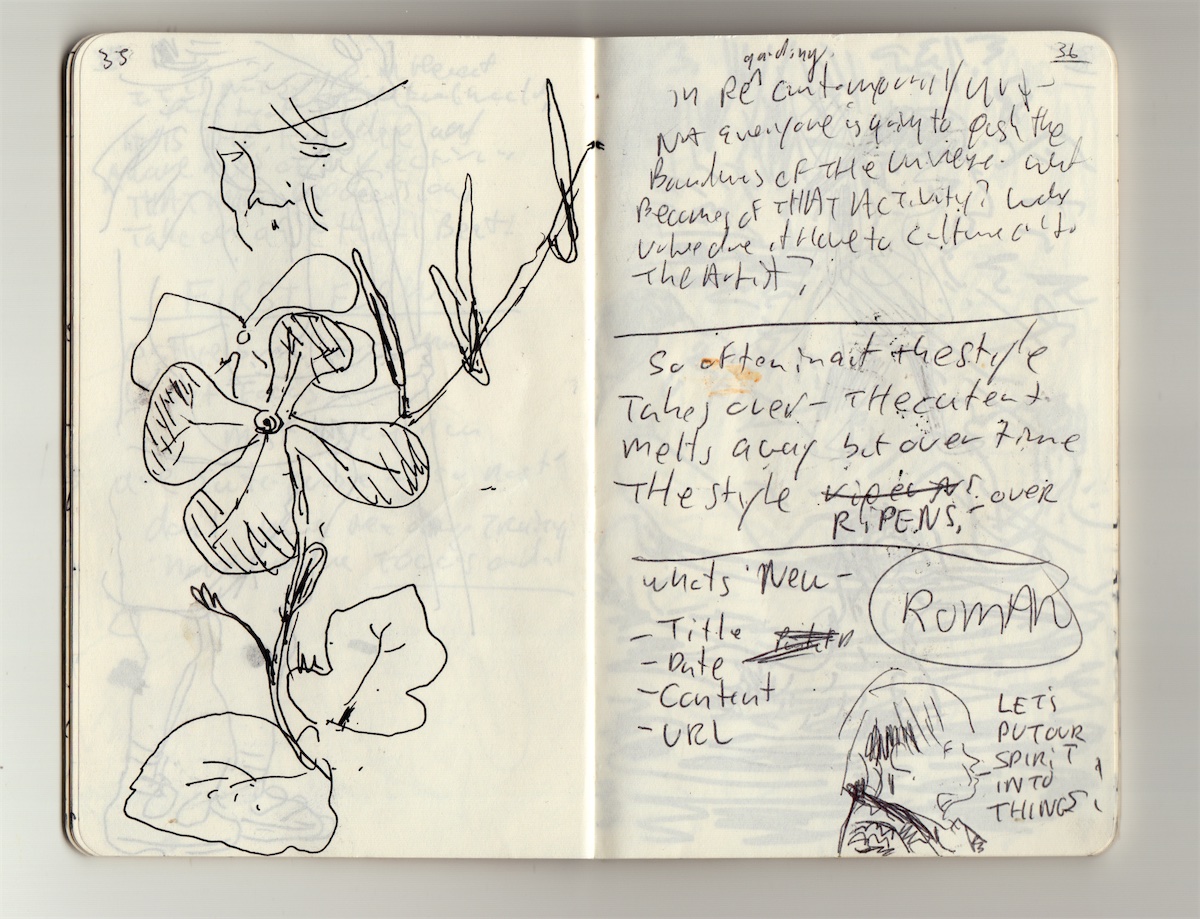 35
36
garding
in Re^ contemporary art -
Not everyone is going to push the
Boundries of THE universe. what
Becomes of THAT ACTiviTy? what
value does it Have to culture or to
THe Artist?
So often in art the style
Takes over - THe content
melts away but over time
THe style over
RiPENS.
whats New -
- Title
- Date
- Content
- URL
RoMAN
LET'S
PUT OUR
SPIRIT
INTO
THINGS!